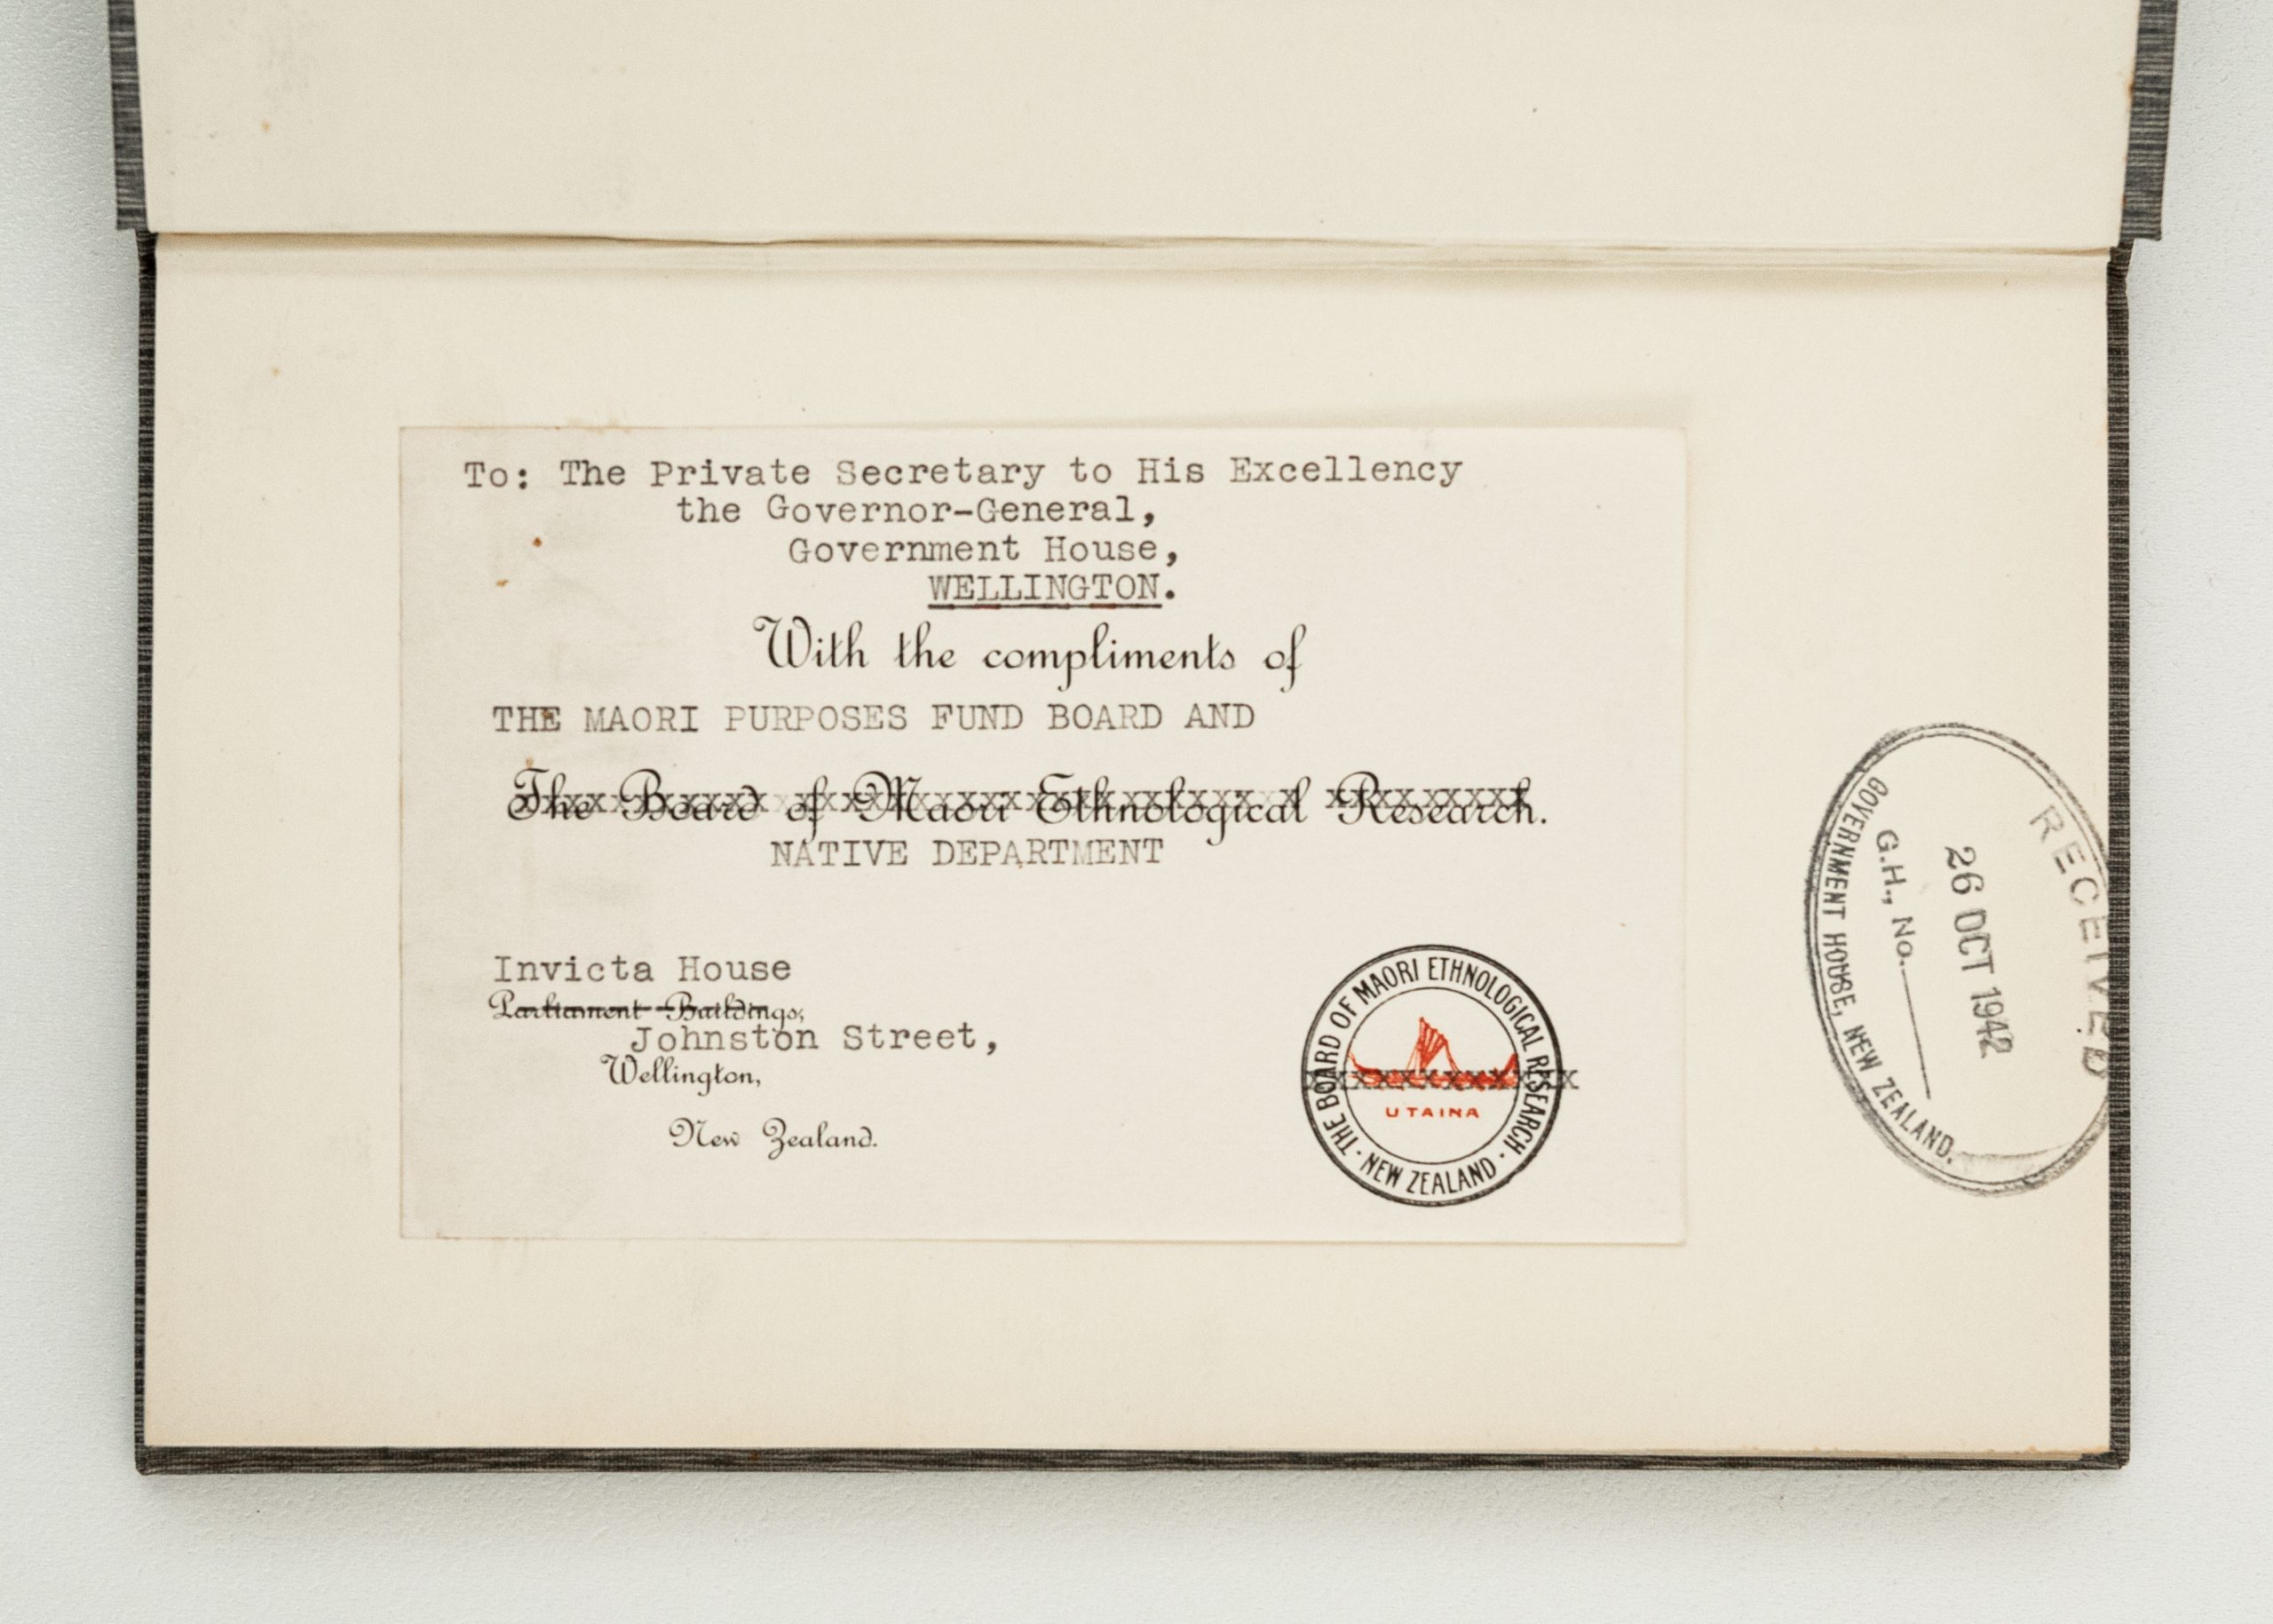 To: The Private Secretary to His Excellency
the Governor-General,
Government House,
WELLINGTON.
With the compliments of
THE MAORI PURPOSES FUND BOARD AND
The Board of Maori Ethnological Research.
NATIVE DEPARTMENT
Invicta House
Parliament Buildings,
Johnston Street,
Wellington,
New Zealand.
THE BOARD OF MAORI ETHNOLOGICAL RESEARCH
xxxxxxxxxxxx
UTAINA
· NEW ZEALAND ·
RECEIVED
26 OCT 1942
G.H., No.
GOVERNMENT HOUSE, NEW ZEALAND.